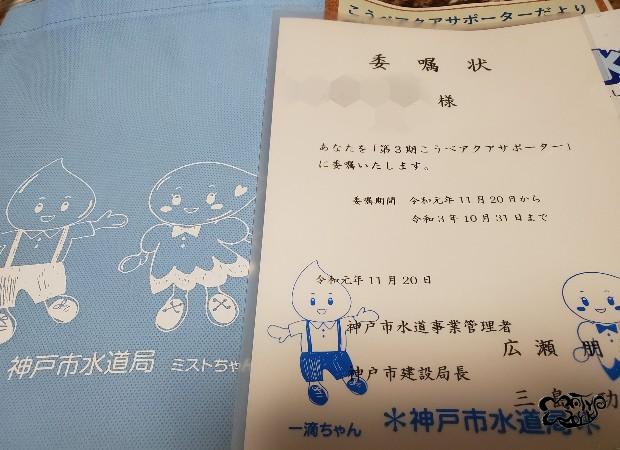 こうベアクアサポーターだより
委嘱状
様
あなたを「第3期こうベアクアサポーター」
に委嘱いたします。
委嘱期間 令和元年11月20日から
令和3年10月31日まで
令和元年11月20日
神戸市水道事業管理者
広瀬 朋
神戸市建設局長
三島 功
一滴ちゃん
*神戸市水道局*
神戸市水道局 ミストちゃん